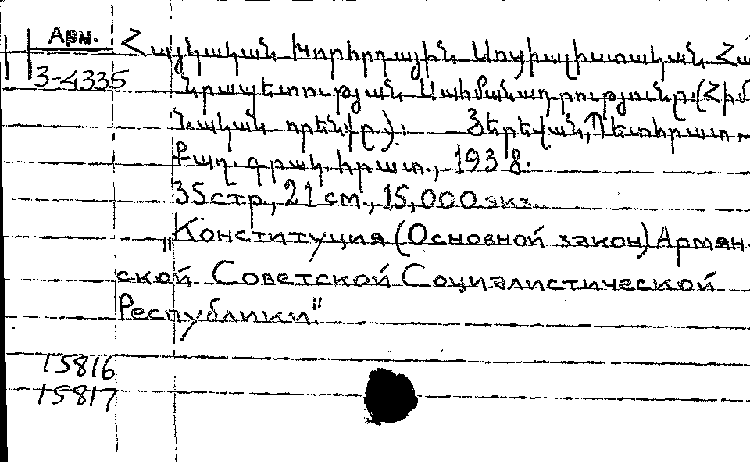 Арм.
3-4335
Հայկական Խորհրդային Սոցիալիստական Հա
նրապետության Սահմանադրությունը: (Հիմ
նական օրենքը): Յերեվան,
Քաղ. գրակ. հրատ., 1938.
35 стр, 21 см., 15,000 экз.
"Конституция (Основной закон) Армян-
ской Советской Социалистической
Республики"
15816
15817